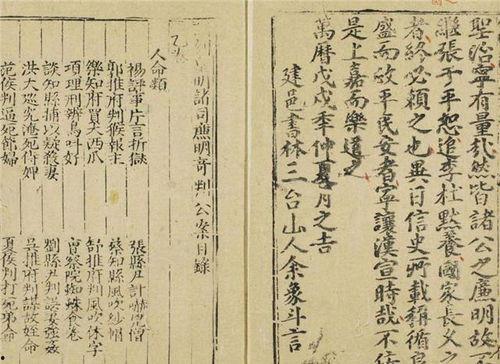 聖治寧有量哉然皆諸公之廉明故
繼張于平恕追李杜默養國家長久之
者終必賴之也異日信史所載循良
盛而政平民安者寧讓漢宣時哉不佞
是上嘉而樂道之
萬曆戊戌季仲夏月之吉
建邑書林三台山人余象斗言
明諸司廉明奇判公案目錄
人命類
楊評事片言折獄 張縣尹計嚇兇僧
郭推府判猴報主 蔡知縣風吹紗帽
樂知府買大西瓜 舒推府判風吹休字
項理刑辨鳥叫好 曾察院蜘蛛食卷
談知縣捕以疑殺妻 劉縣尹判誤妻強姦
洪大巡究淹死侍婢 吳推府判謀故侄命
范侯判逼死節婦 夏侯判打死弟命